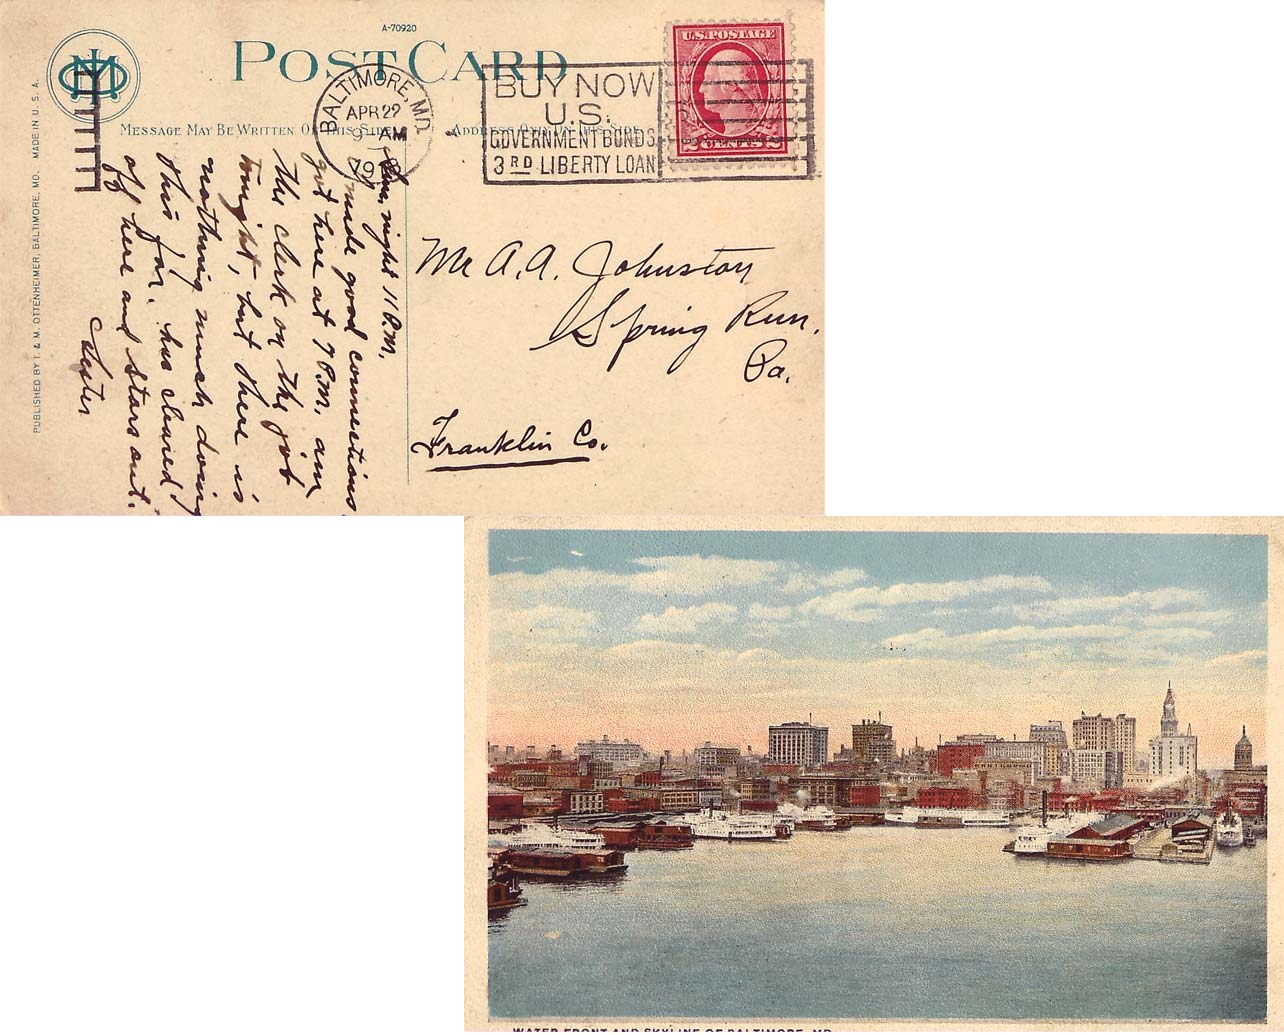 A-70920
POST CARD
MESSAGE MAY BE WRITTEN ON THIS SIDE
ADDRESS ONLY ON THIS SIDE
BALTIMORE, MD.
APR 29
9 AM
1918
BUY NOW
U.S.
GOVERNMENT BONDS
3RD LIBERTY LOAN
U.S. POSTAGE
2 CENTS 2
PUBLISHED BY I. & M. OTTENHEIMER, BALTIMORE, MD. MADE IN U.S.A.
Sun, night 11 P.M.
made good connections
got here at 7 P.M. am
the clerk on the job
tonight, but there is
nothing much doing
this far. has cleared
off here and stars out.
Mr A. A. Johnston
Spring Run.
Pa.
Franklin Co.
WATER FRONT AND SKYLINE OF BALTIMORE, MD.